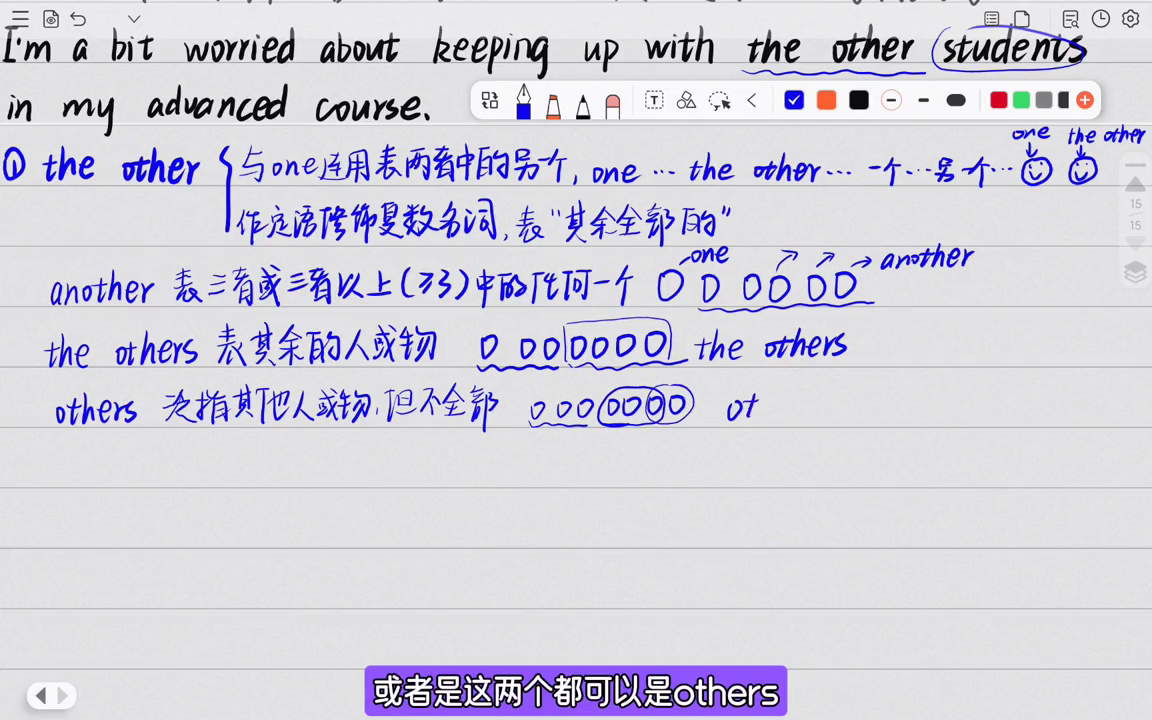 I'm a bit worried about keeping up with the other students
in my advanced course.
one the other
① the other 与one连用表两者中的另一个, one … the other … 一个…另一个…
作定语修饰复数名词, 表“其余全部的”
one another
another 表三者或三者以上(≥3)中的任何一个
the others 表其余的人或物 the others
others 泛指其他人或物, 但不全部 ot
15
15
或者是这两个都可以是others